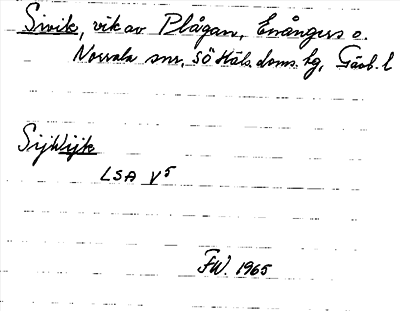 Sivik, vik av Plågan, Enångers o.
Norrala snr, Sö Häls. doms. hg, Gävl. l
Sijklijk
LSA V5
FW. 1965